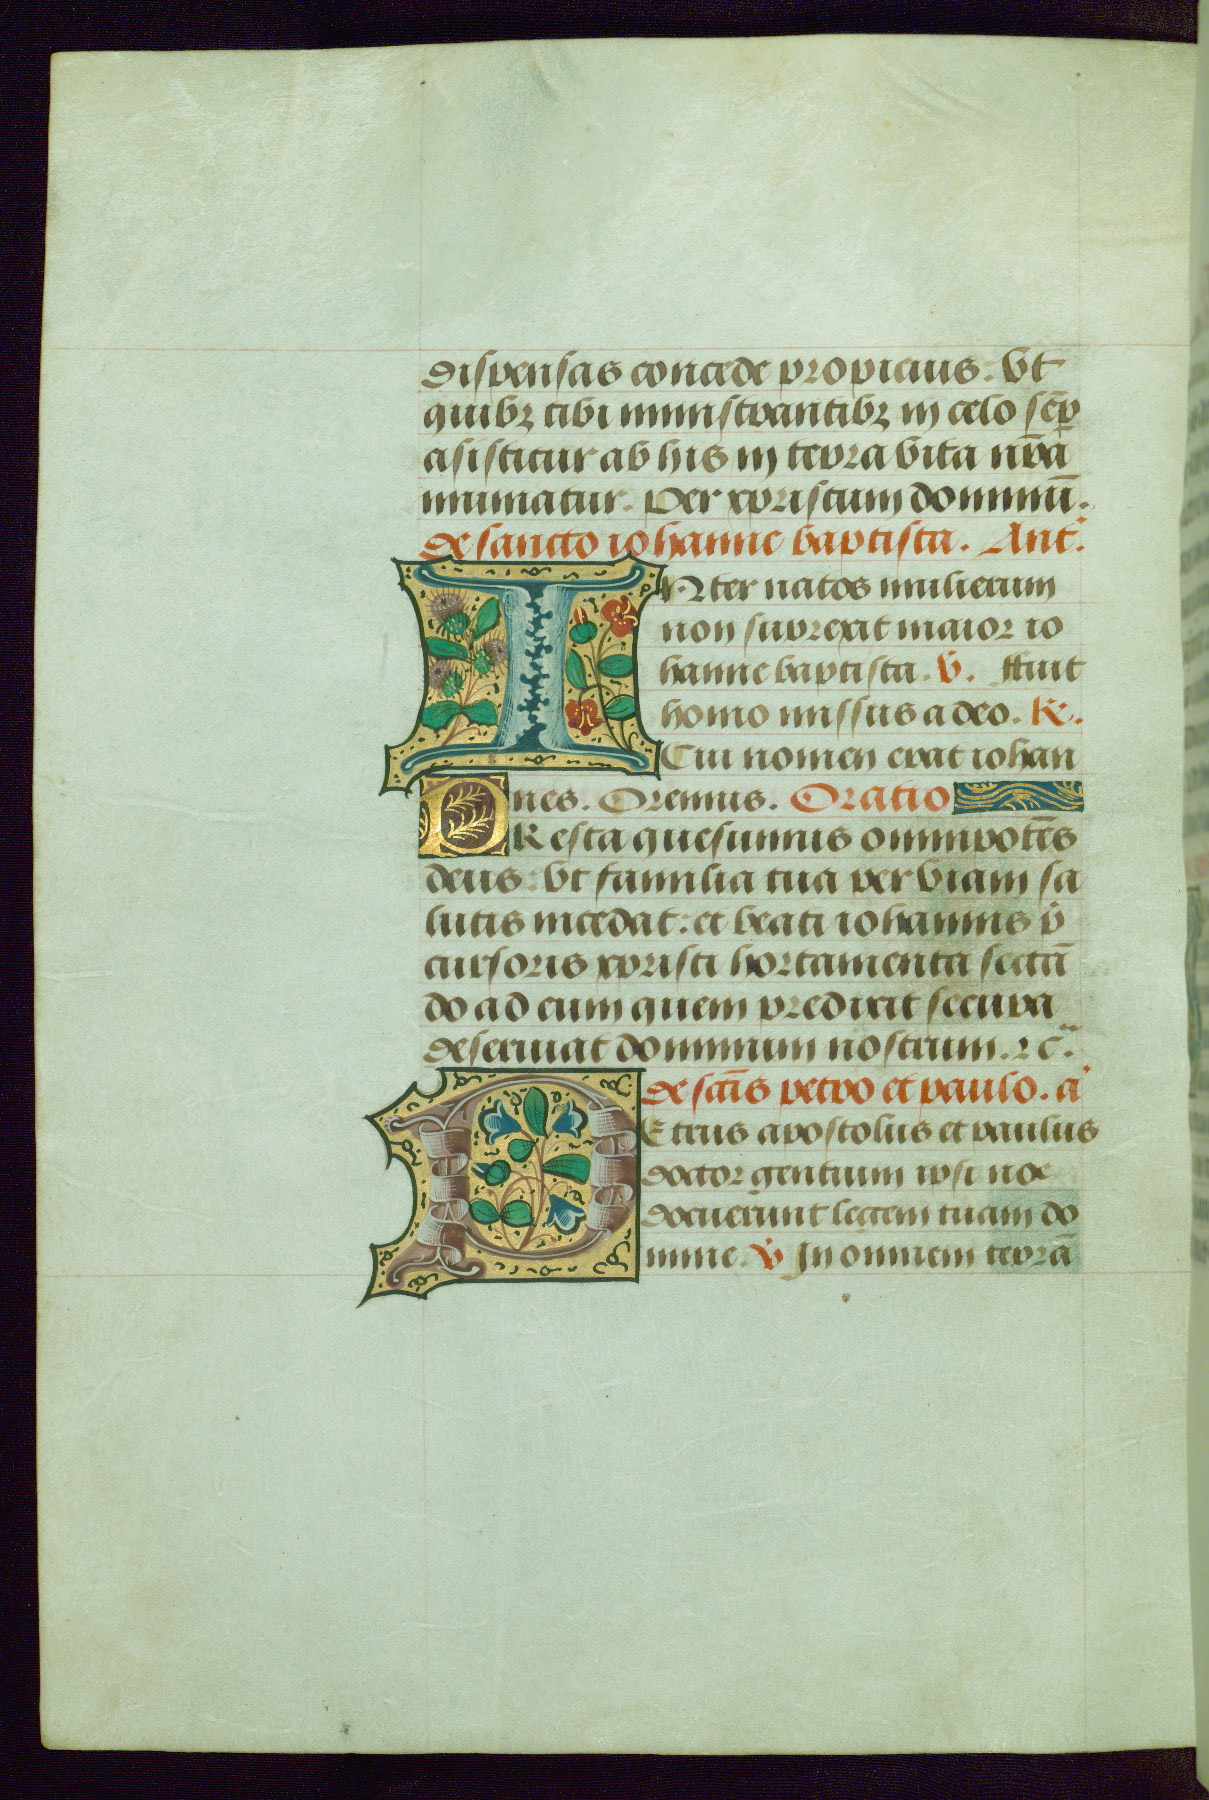 dispensas concede propicius. Vt
quibꝫ tibi ministrantibꝫ in celo sēp̄
asistitur ab his in terra vita nr̄a
muniatur. Per xpristum dominū.
de sancto iohanne baptista. Ant̄.
INter natos mulierum
non surrexit maior io
hanne baptista. V̄. ffuit
homo missus a deo. R̄.
Cui nomen erat iohan
nes. Oremus. Oratio
PResta quesumus omnipotēs
deus: vt familia tua per viam sa
lutis incedat: et beati iohannis p̄
cursoris xpristi hortamenta sectā
do ad eum quem predixit secura
deseruiat dominum nostrum. ⁊c̄.
de sc̄tis petro et paulo. ā
PEtrus apostolus et paulus
doctor gentium ipsi nos
docuerunt legem tuam do
mine. V̄ In omnem terrā